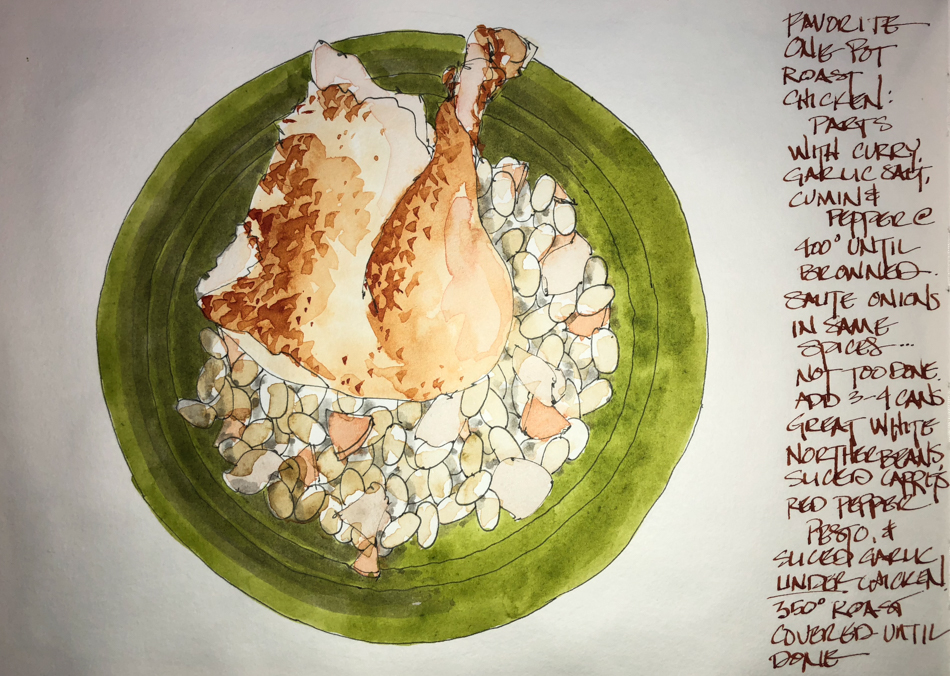 FAVORITE
ONE-POT
ROAST
CHICKEN:
PARTS
WITH CURRY,
GARLIC SALT,
CUMIN &
PEPPER @
400° UNTIL
BROWNED.
SAUTE ONIONS
IN SAME
SPICES...
NOT TOO DONE
ADD 3-4 CANS
GREAT WHITE
NORTHER BEANS
SLICED CARRTS
RED PEPPER
PESTO, &
SLICED GARLIC
UNDER CHICKEN
350° ROAST
COVERED UNTIL
DONE